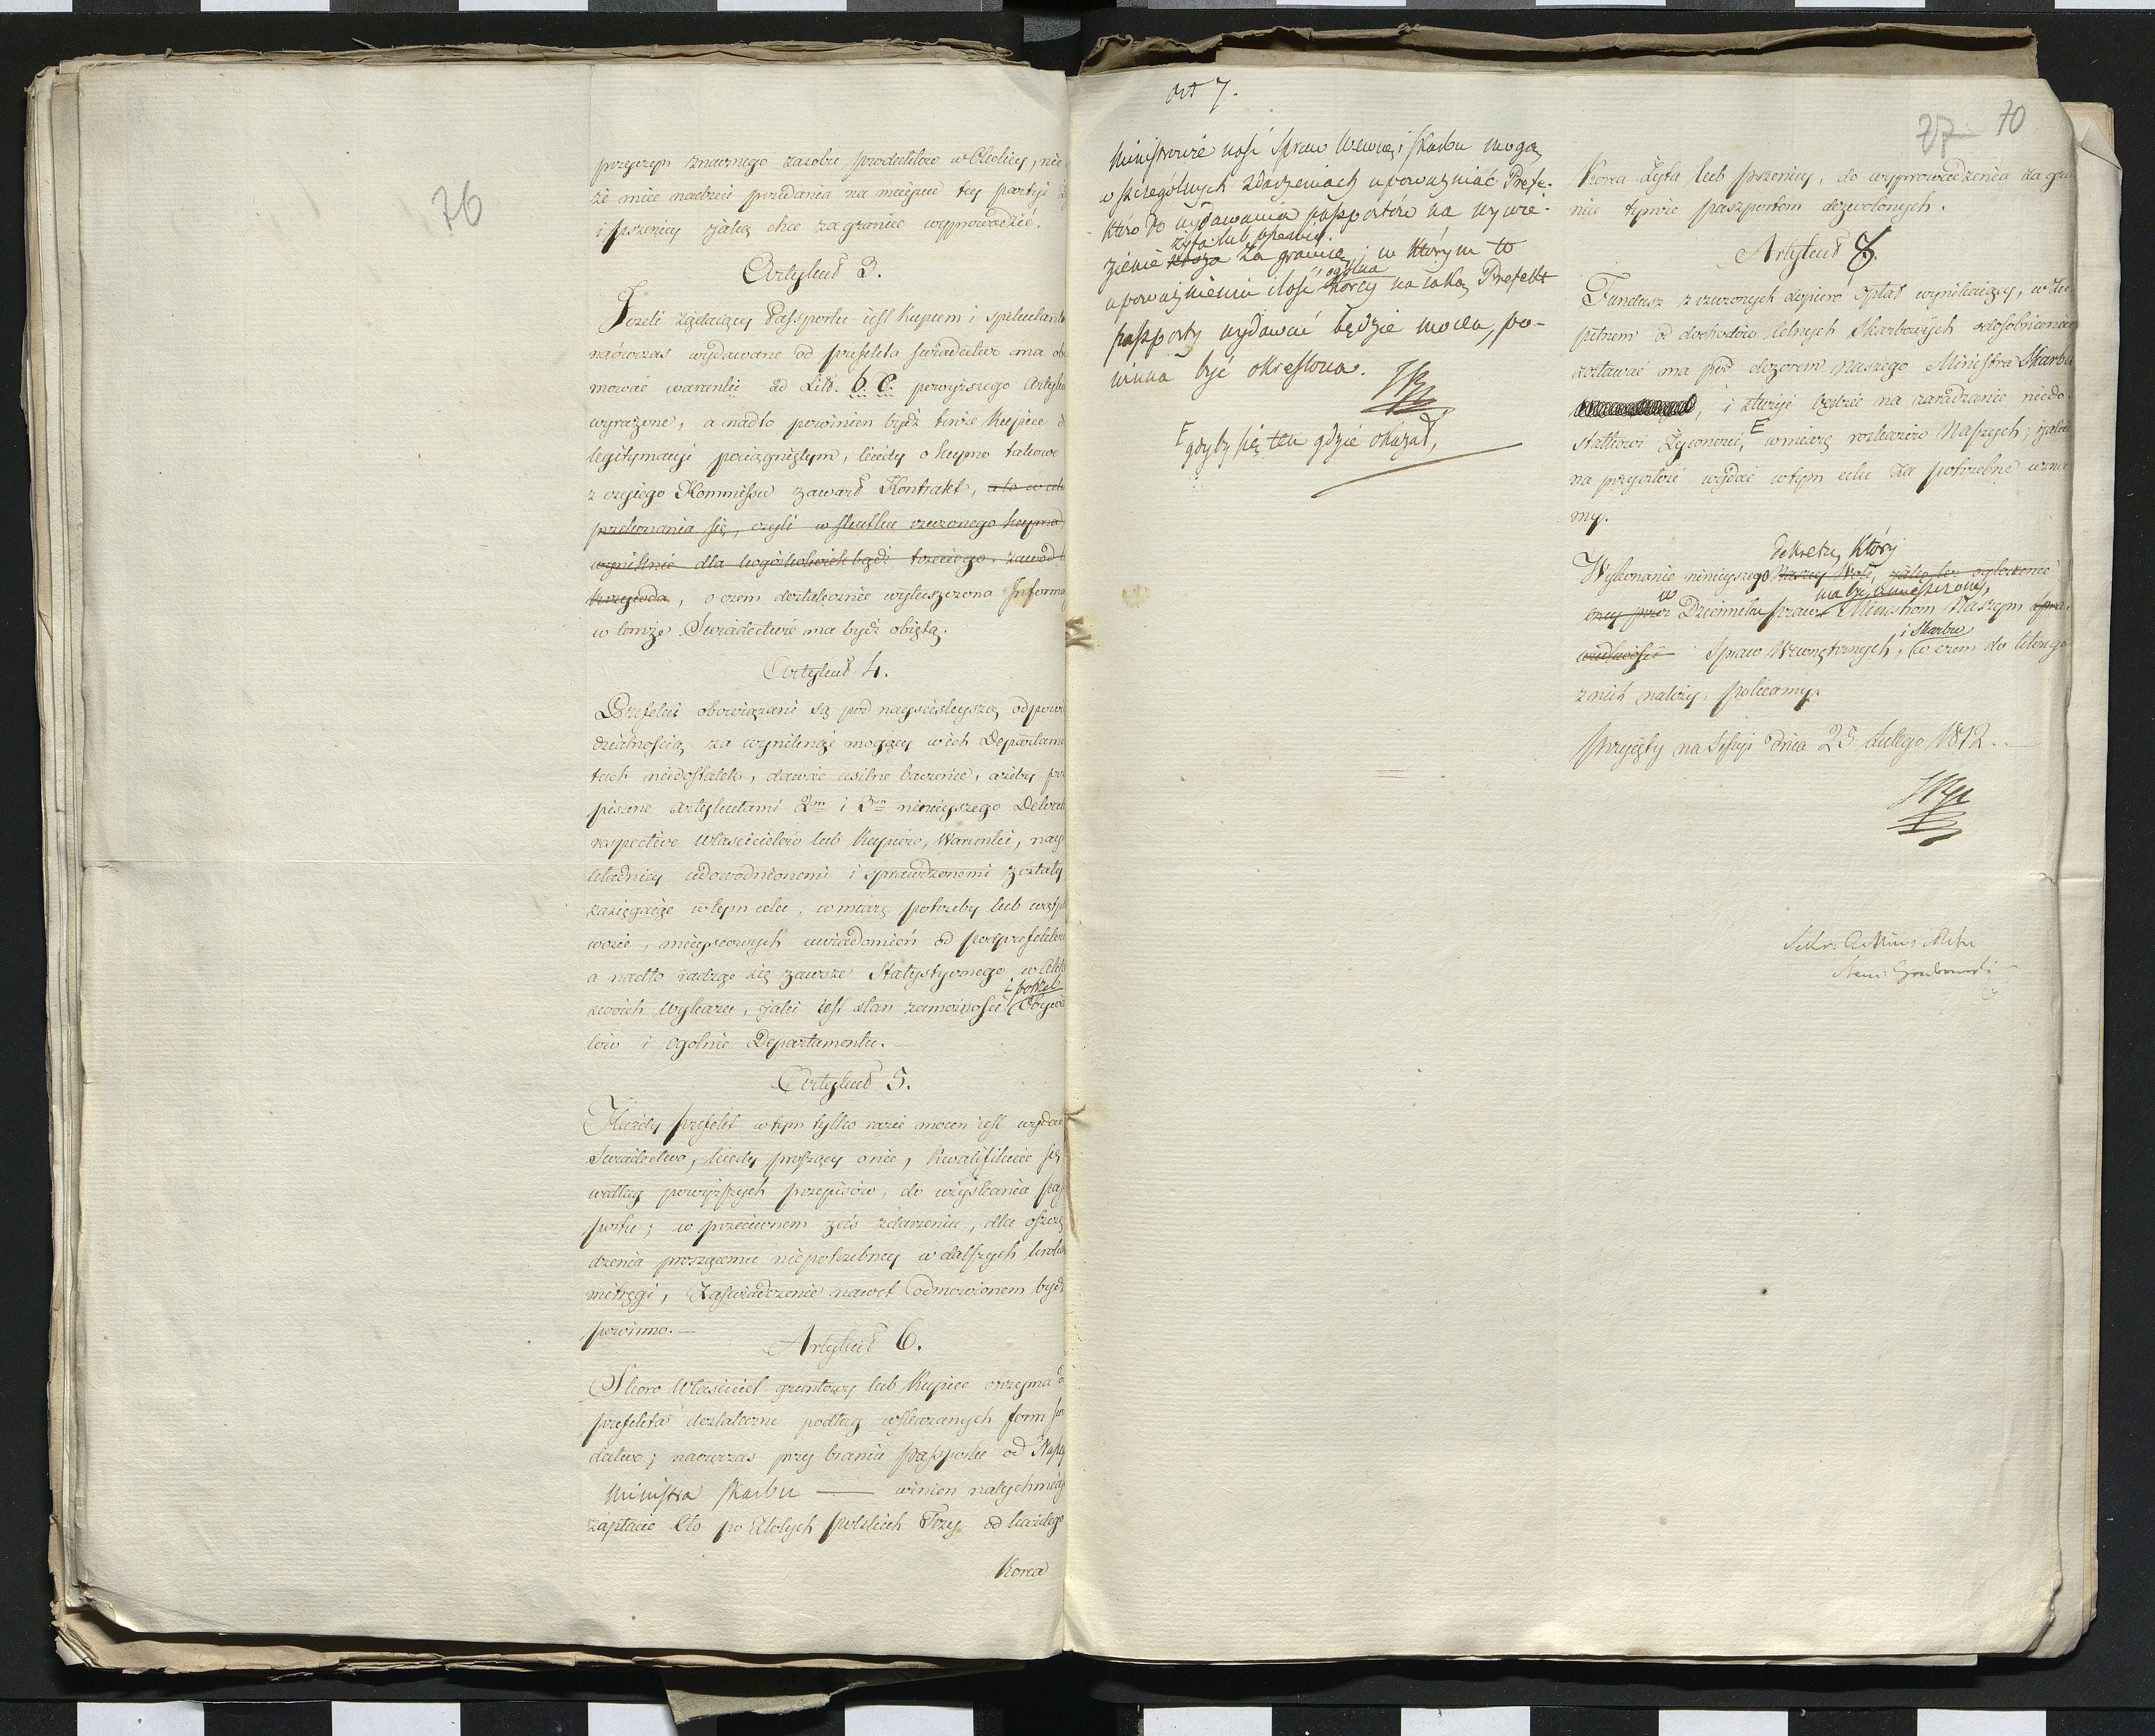 76
przyczyn znacznego zasobu produktów w Okolicy, nie
że nadziei przedania na mieyscu tey partyi
i pszenicy jaką chce za granice wyprowadzić.
Artykuł 3.
Jeżeli żądaiący Passportu iest kupcem i spekulant
naówczas wydawane od prefekta swiadectwo ma
mować warunki ad Litt. b. c. powyższego Artyku
wyrażone, a nadto powinien bydź tenże kupiec
legitymacyi pociągniętym, kiedy o kupno takowe
z czyiego Kommissu zawarł Kontrakt, a to w celu
przekonania się, czyli w skutku rzeczonego kupna
wyniknie dla kogożkolwiekbądź trzeciego zawód
krzywda, o czem dostatecznie wyłuszczona Informa
w temże Swiadectwie ma bydź obiętą.
Artykuł 4.
Prefekci obowiązani są pod nayscisleyszą odpowie
dzialnością za wyniknąć mogący w ich Departamen
tach niedostatek, dawać usilne baczenie, ażeby prze
pisane Artykułami 2m i 3m ninieyszego Dekretu
respective Właścicielów lub Kupców, Warunki, nay
udowodnionemi i sprawdzonemi zostały
zasięgaiąc w tym celu, w miarę potrzeby lub wątpli
wości, mieyscowych uwiadomień od podprefektów
a nadto radząc się zawsze Statystycznego
i potrzeb
swoich wykazu, jaki iest stan zamożności Obywa
telów i ogolnie Departamentu.
Artykuł 5.
Każdy prefekt w tym tylko razie mocen iest wydać
Swiadectwo, kiedy proszący onie, kwalifikuie się
według powyższych przepisów, do uzyskania pas
portu; w przeciwnem zaś zdarzeniu, dla oszczę
dzenia proszącemu niepotrzebney w dalszych krokach
mitręgi, Zaswiadczenie nawet odmowionem bydź
powinno.
Artykuł 6.
Skoro Właściciel gruntowy lub kupiec otrzyma od
prefekta dostateczne podług wskazanych form swia
dectwo; naowczas przy braniu passportu od Naszego
Ministra Skarbu winien natychmiast
zapłacić Cło po złotych polskich Trzy od każdego
Korca
art 7.
Ministrowie nasi Spraw Wewnę: i Skarbu mogą
w szczególnych zdarzeniach upoważniać Prefe-
któw do wydawania passportów na wywie-
żyta lub pszenicy
zienie zboża za granicę; w którym to
ogólna
upoważnieniu ilość korcy na iaką Prefekt
passporty wydawać będzie mocen, po-
winna być określona.
F gdyby się ten gdzie okazał,
77 70
Korca Żyta lub pszenicy, do wyprowadzenia za gra
nice tymże paszportem dozwolonych.
Artykuł 8.
Fundusz z rzeczonych dopiero opłat wynikaiący, w Zu
pełnem od dochodów celnych Skarbowych odosobnieniu
zostawać ma pod dozorem Naszego Ministra Skarbu
, i służyć będzie na zaradzenie niedo-
statkowi Żywności, F w miarę rozkazów Naszych, jakie
na przyszłość wydać w tym celu za potrzebne uzna
my.
dekretu, który
Wykonanie ninieyszego Naszey Woli, jako też ogłoszenie
w ma być umieszczony,
oney przez Dzienniku praw Ministrom Naszym Spra-
i Skarbu
wiedliwości Spraw Wewnętrznych, w czem do którego
z nich należy, polecamy.
Przyięty na Sessyi dnia 25 Lutego 1812.